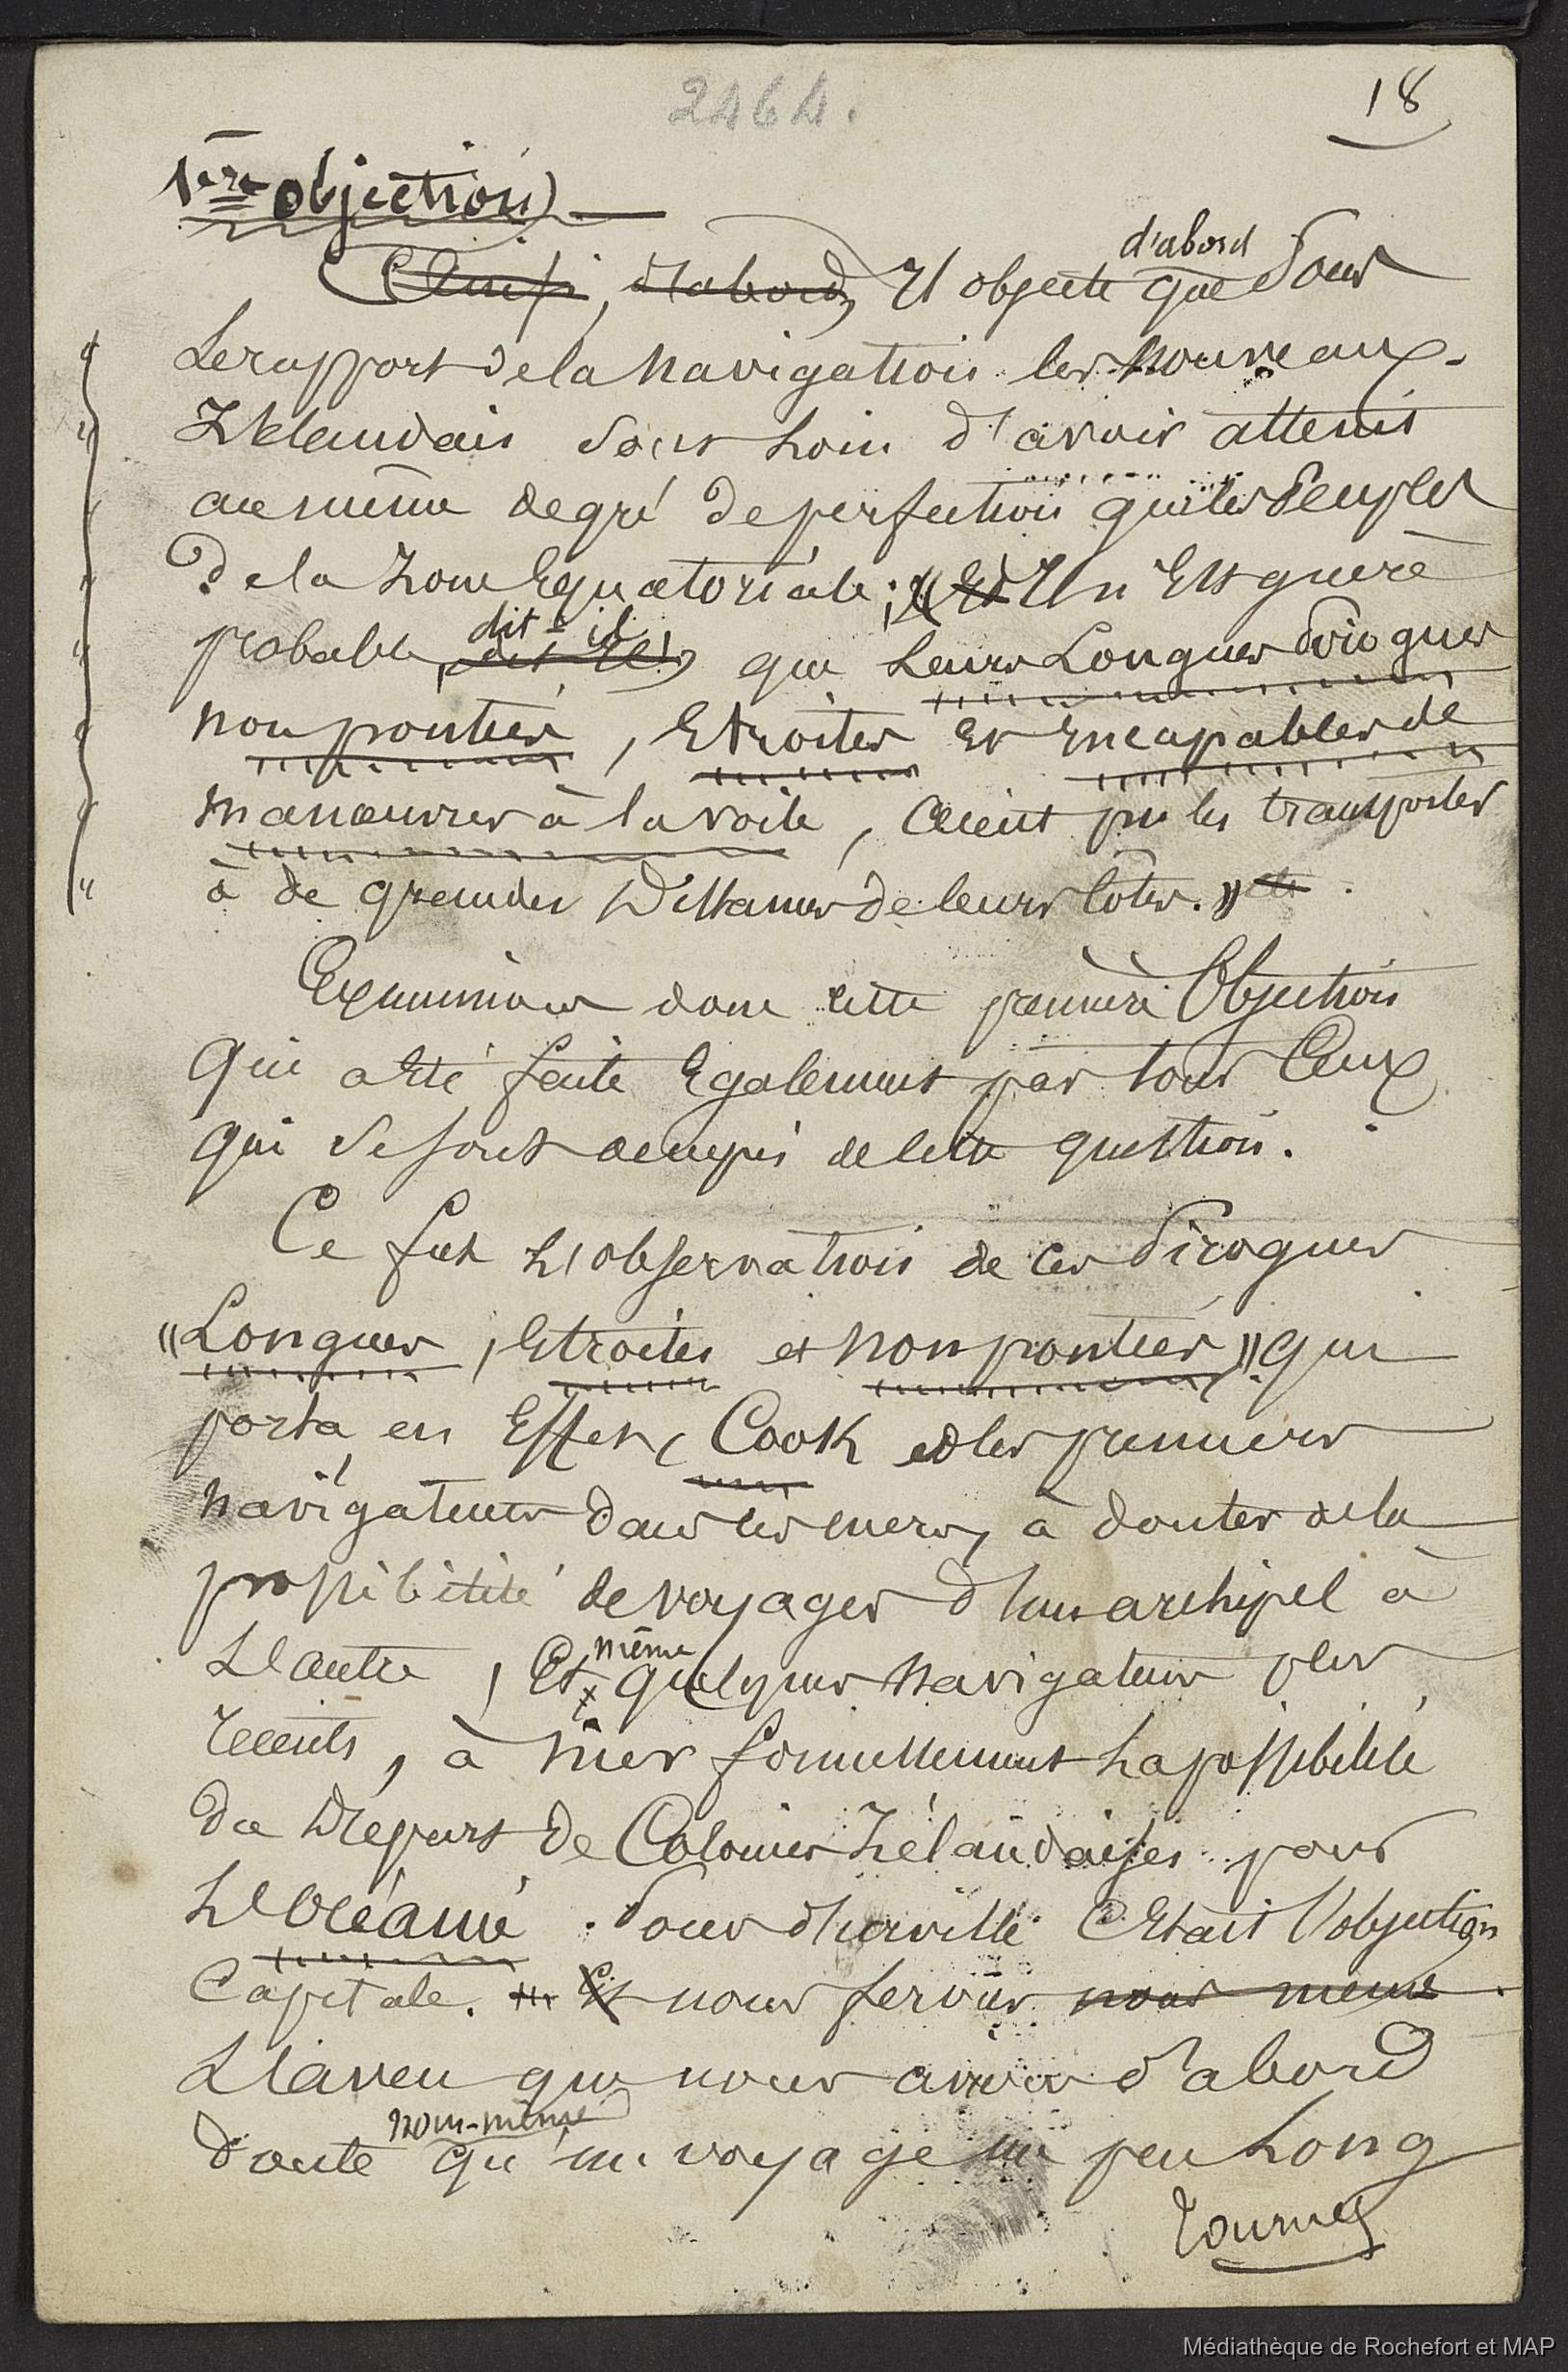 2464.
18
1ère objection
Ainsi, d'abord, Il objecte d'abord que Sous
Le rapport de la navigation les nouveaux-
Zélandais Sont Loin d'avoir atteint
au même degré de perfection que les Peuples
De la Zone Equatoriale; « Et Il n'Est guère
probable, dit-il, dit-il, que Leurs Longues Pirogues
non pontées, Etroites et Incapables de
manœuvrer à la voile, aient pu les transporter
à de grandes Distances de leurs Côtes. »
Examinons donc cette première Objection
Qui a Eté faite Egalement par tous Ceux
qui se sont occupés de cette question.
Ce fut L'observation de ces Pirogues
« Longues, Etroites et non pontées » qui
porta, en Effet, Cook et les premiers
navigateurs dans ces mers, à douter de la
possibilité de voyages d'un archipel à
L'autre, Et même quelques navigateurs plus
récents, à nier formellement La possibilité
du Départ de Colonies Zélandaises pour
L'Océanie. Pour d'urville C'Etait l'objection
Capitale. Et nous ferons nous même
L'aveu que nous avons d'abord
douté nous-même qu'un voyage un peu Long
Tournez
Médiathèque de Rochefort et MAP